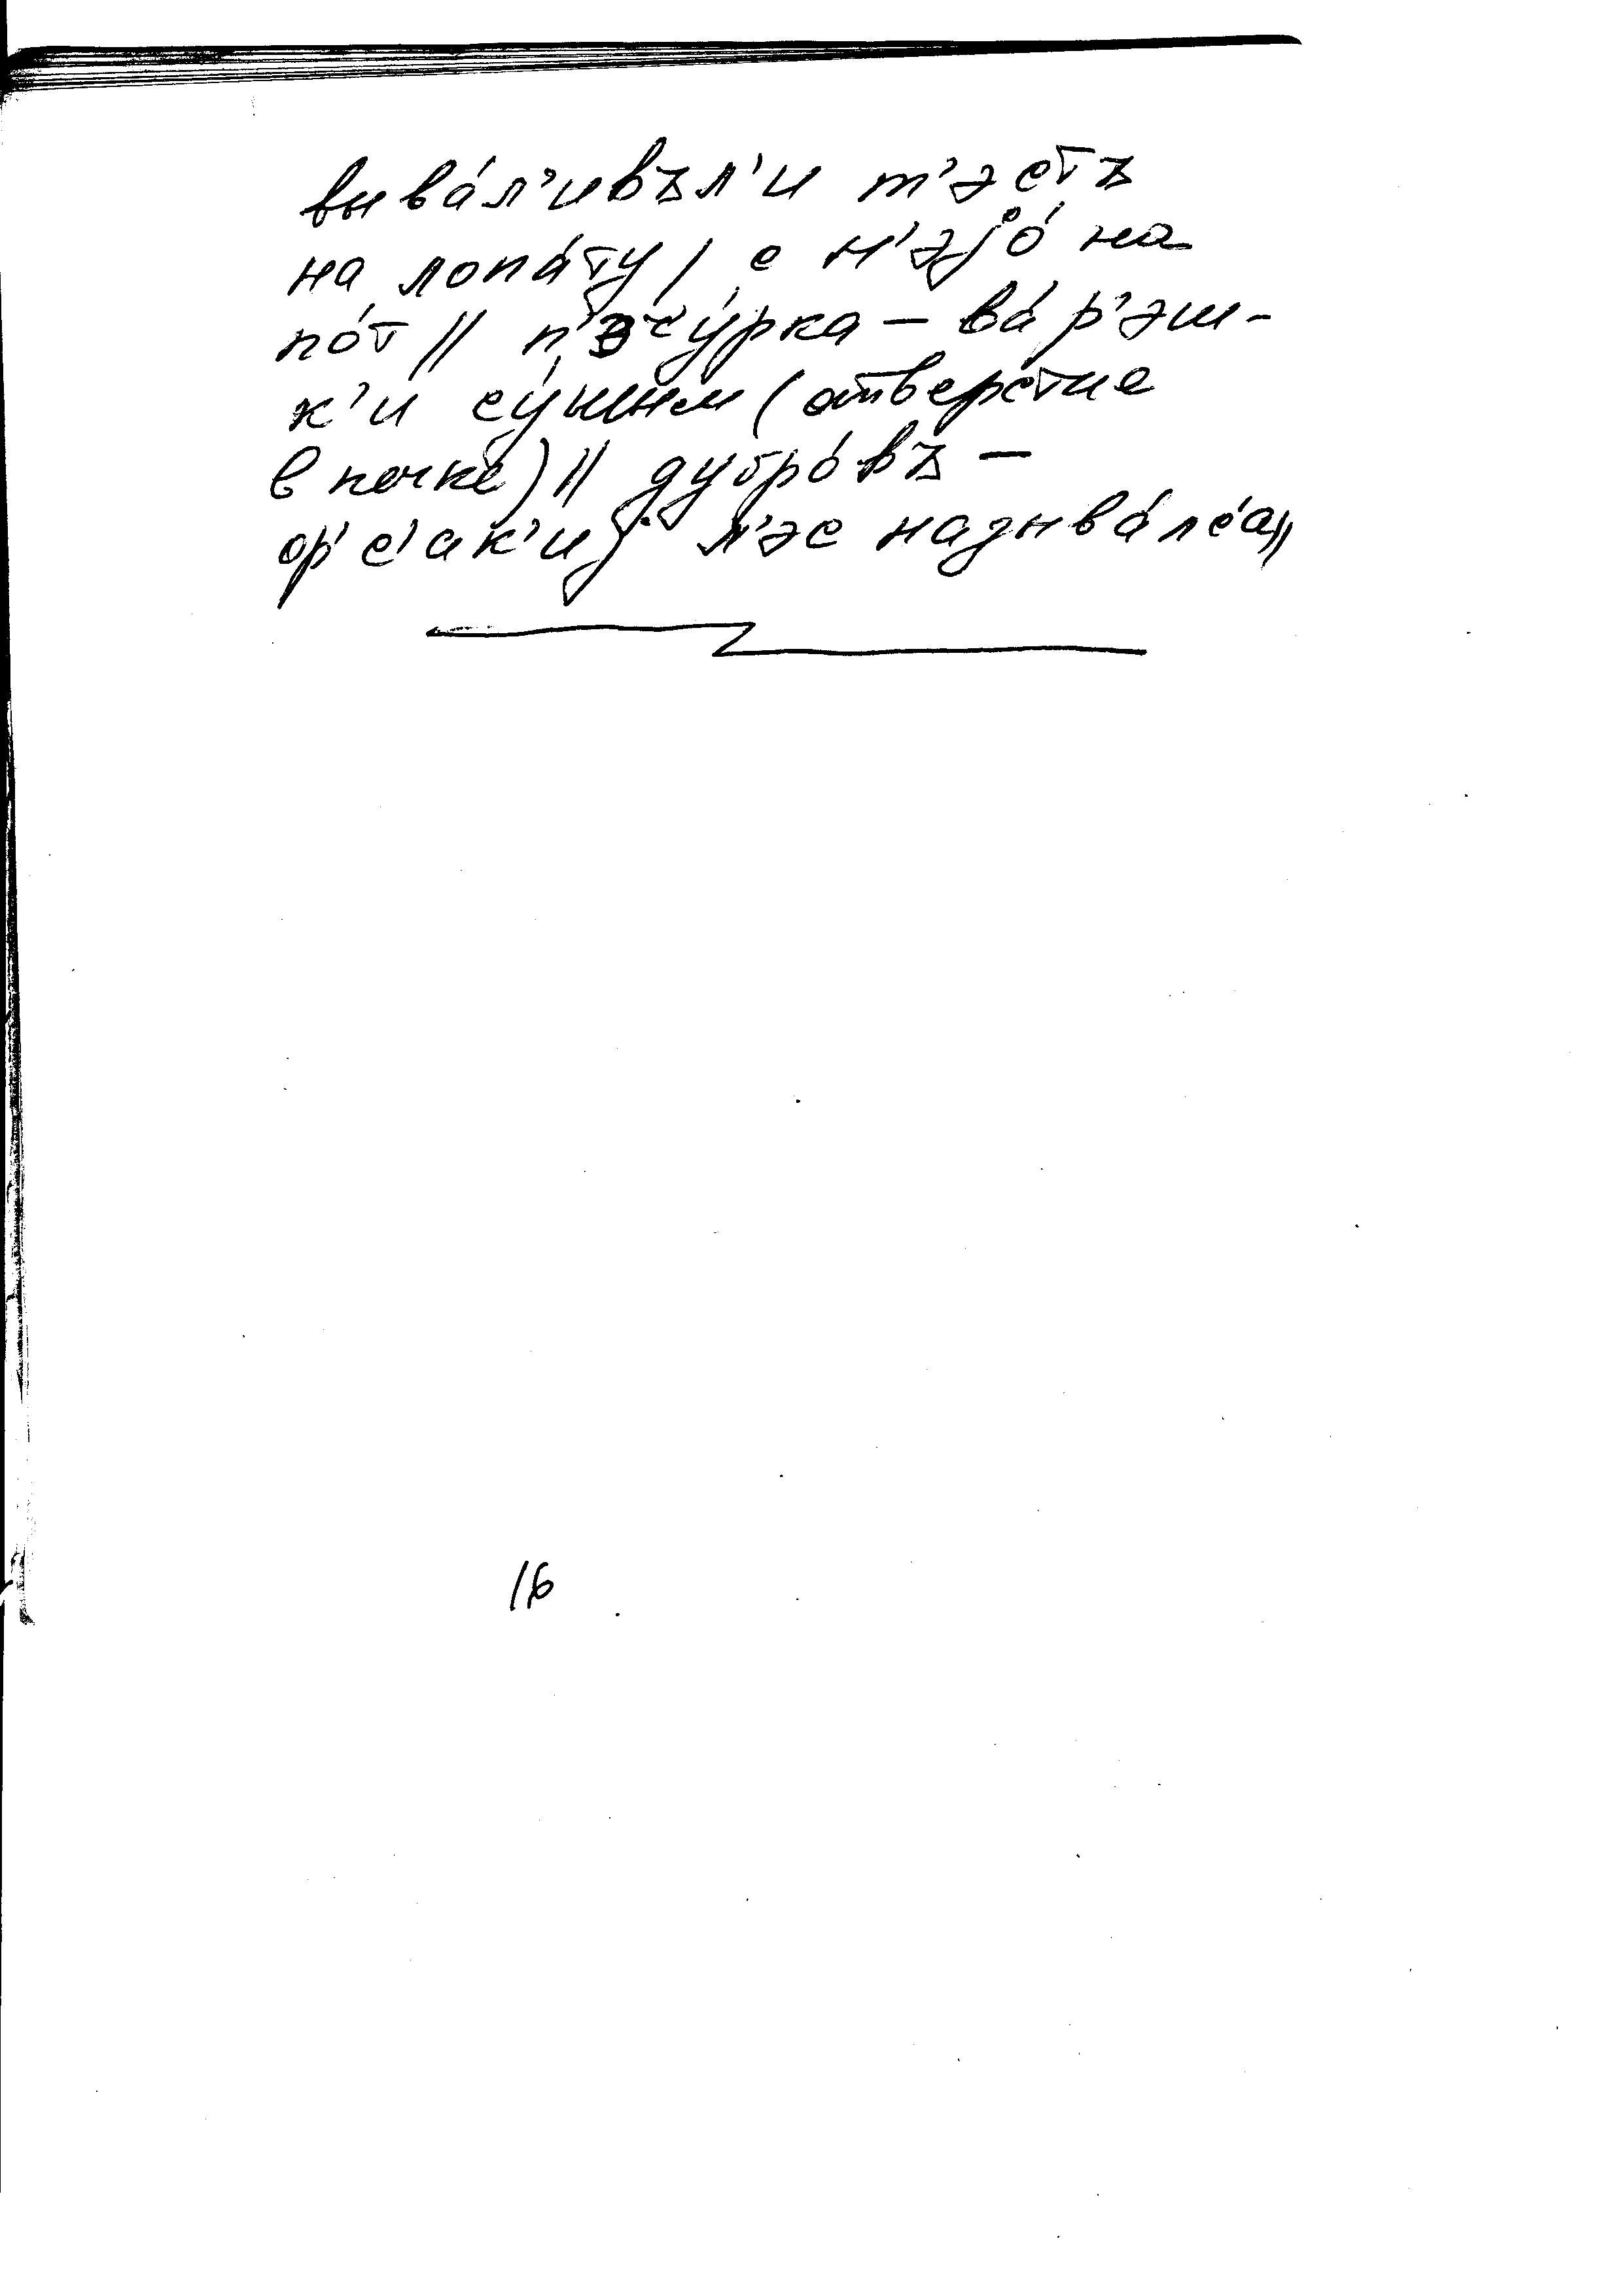 выва́л'ивъл'и т'эстъ
на лопа́ту / с н'эjо́ на
по́т // п'эсу́рка – ва́р'эш-
к'и су́шым (отверстие
в печке) // дубро́въ –
ор'с'ак'иj л'эс называ́лс'а //
16